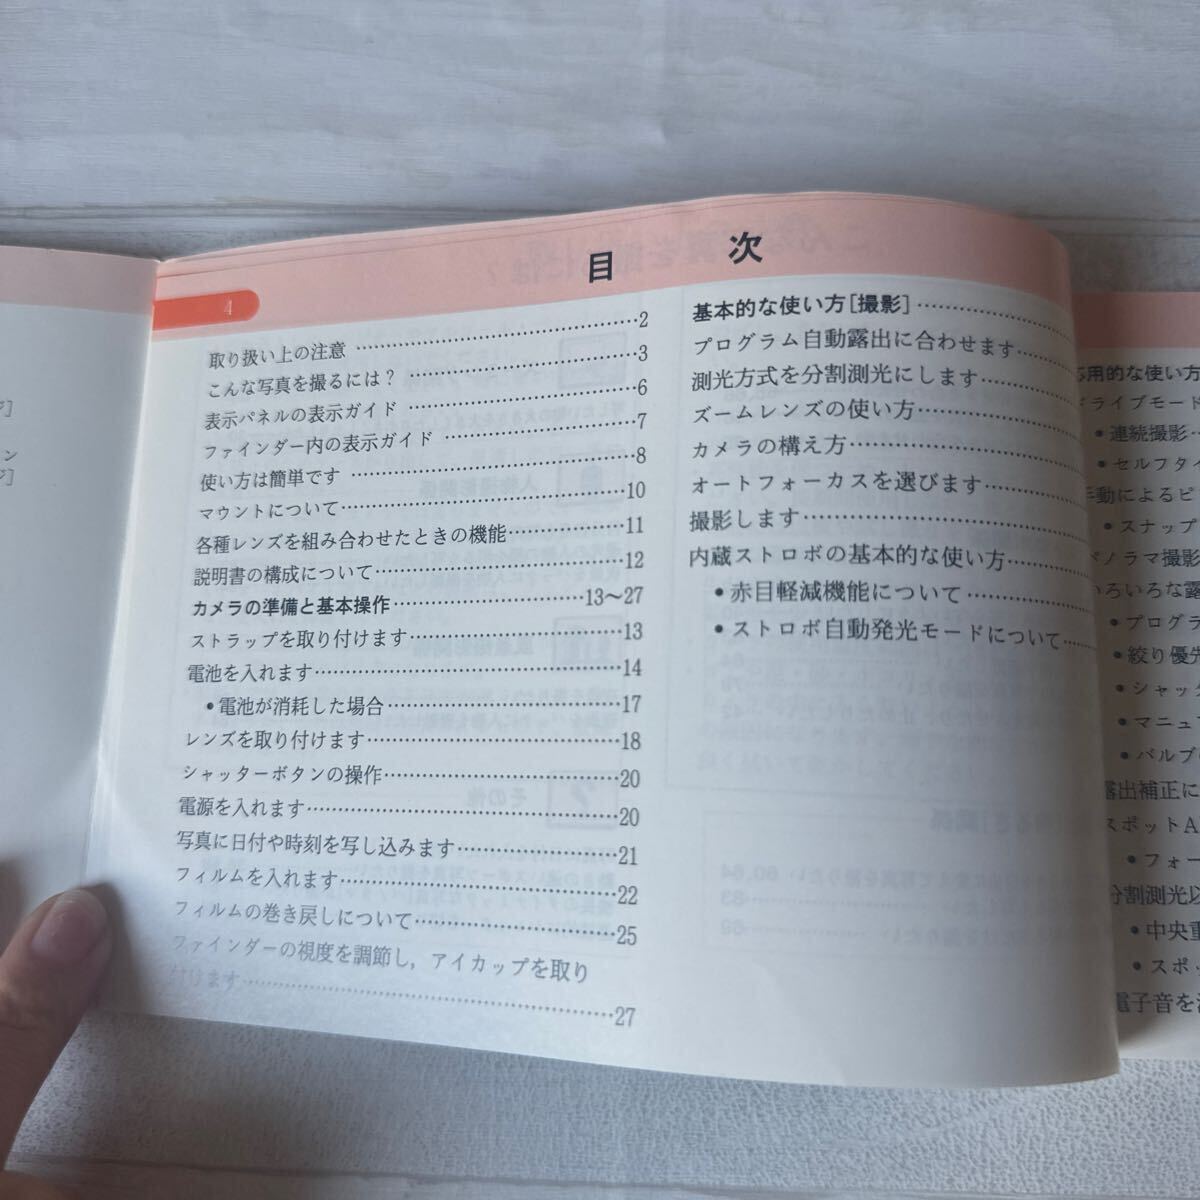 ジ]
ン
ジ]
4
目 次
取り扱い上の注意 ……………………………2
こんな写真を撮るには? ……………………3
表示パネルの表示ガイド ……………………6
ファインダー内の表示ガイド ………………7
使い方は簡単です ……………………………8
マウントについて……………………………10
各種レンズを組み合わせたときの機能………11
説明書の構成について………………………12
カメラの準備と基本操作………………13〜27
ストラップを取り付けます…………………13
電池を入れます………………………………14
•電池が消耗した場合………………………17
レンズを取り付けます………………………18
シャッターボタンの操作……………………20
電源を入れます………………………………20
写真に日付や時刻を写し込みます…………21
フィルムを入れます…………………………22
フィルムの巻き戻しについて………………25
ファインダーの視度を調節し,アイカップを取り
付けます………………………………………27
基本的な使い方[撮影]………………
プログラム自動露出に合わせます……
測光方式を分割測光にします…………
ズームレンズの使い方…………………
カメラの構え方…………………………
オートフォーカスを選びます…………
撮影します………………………………
内蔵ストロボの基本的な使い方………
•赤目軽減機能について………………
•ストロボ自動発光モードについて……
応用的な使い方
ドライブモード
•連続撮影…
•セルフタイ
手動によるピ
•スナップ
パノラマ撮影
いろいろな露
•プログラ
•絞り優先
•シャッタ
•マニュ
•バルブ
露出補正に
スポットA
•フォー
分割測光以
•中央重
•スポッ
電子音を